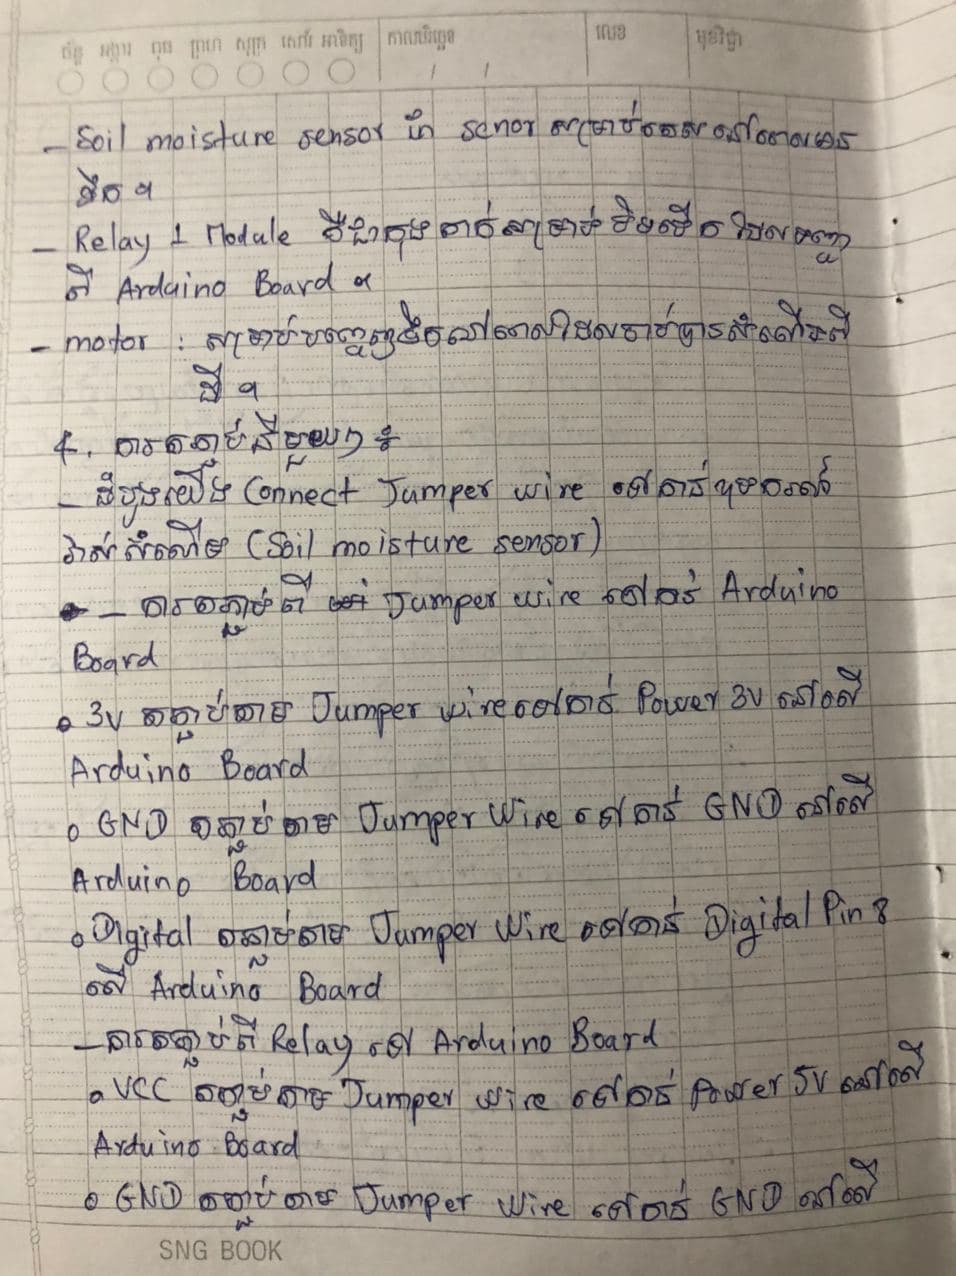 ច័ន្ទ អង្គារ ពុធ ព្រហ សុក្រ សៅរ៍ អាទិត្យ កាលបរិច្ឆេទ លេខ មុខវិជ្ជា
- Soil moisture sensor ជា senor សម្រាប់តេស នៅពេលមាន
ទឹក ។
- Relay 1 Module គឺជាកុងតាក់សម្រាប់បិទបើក ដែលបញ្ជា
ពី Arduino Board ។
- motor : សម្រាប់បញ្ចេញទឹកនៅពេលដែលចាប់បានសំណើមពី
ដី ។
4. ការតភ្ជាប់នីមួយៗ ៖
- ដំបូងយើង Connect Jumper wire ទៅកាន់ឧបករណ៍
វាស់សំណើម (Soil moisture sensor)
- ការតភ្ជាប់ពី Jumper wire ទៅកាន់ Arduino
Board
• 3V តភ្ជាប់តាម Jumper wire ទៅកាន់ Power 3V នៅលើ
Arduino Board
• GND តភ្ជាប់តាម Jumper Wire ទៅកាន់ GND នៅលើ
Arduino Board
• Digital តភ្ជាប់តាម Jumper Wire ទៅកាន់ Digital Pin 8
លើ Arduino Board
- ការតភ្ជាប់ពី Relay ទៅ Arduino Board
• VCC តភ្ជាប់តាម Jumper wire ទៅកាន់ Power 5V នៅលើ
Arduino Board
• GND តភ្ជាប់តាម Jumper Wire ទៅកាន់ GND នៅលើ
SNG BOOK